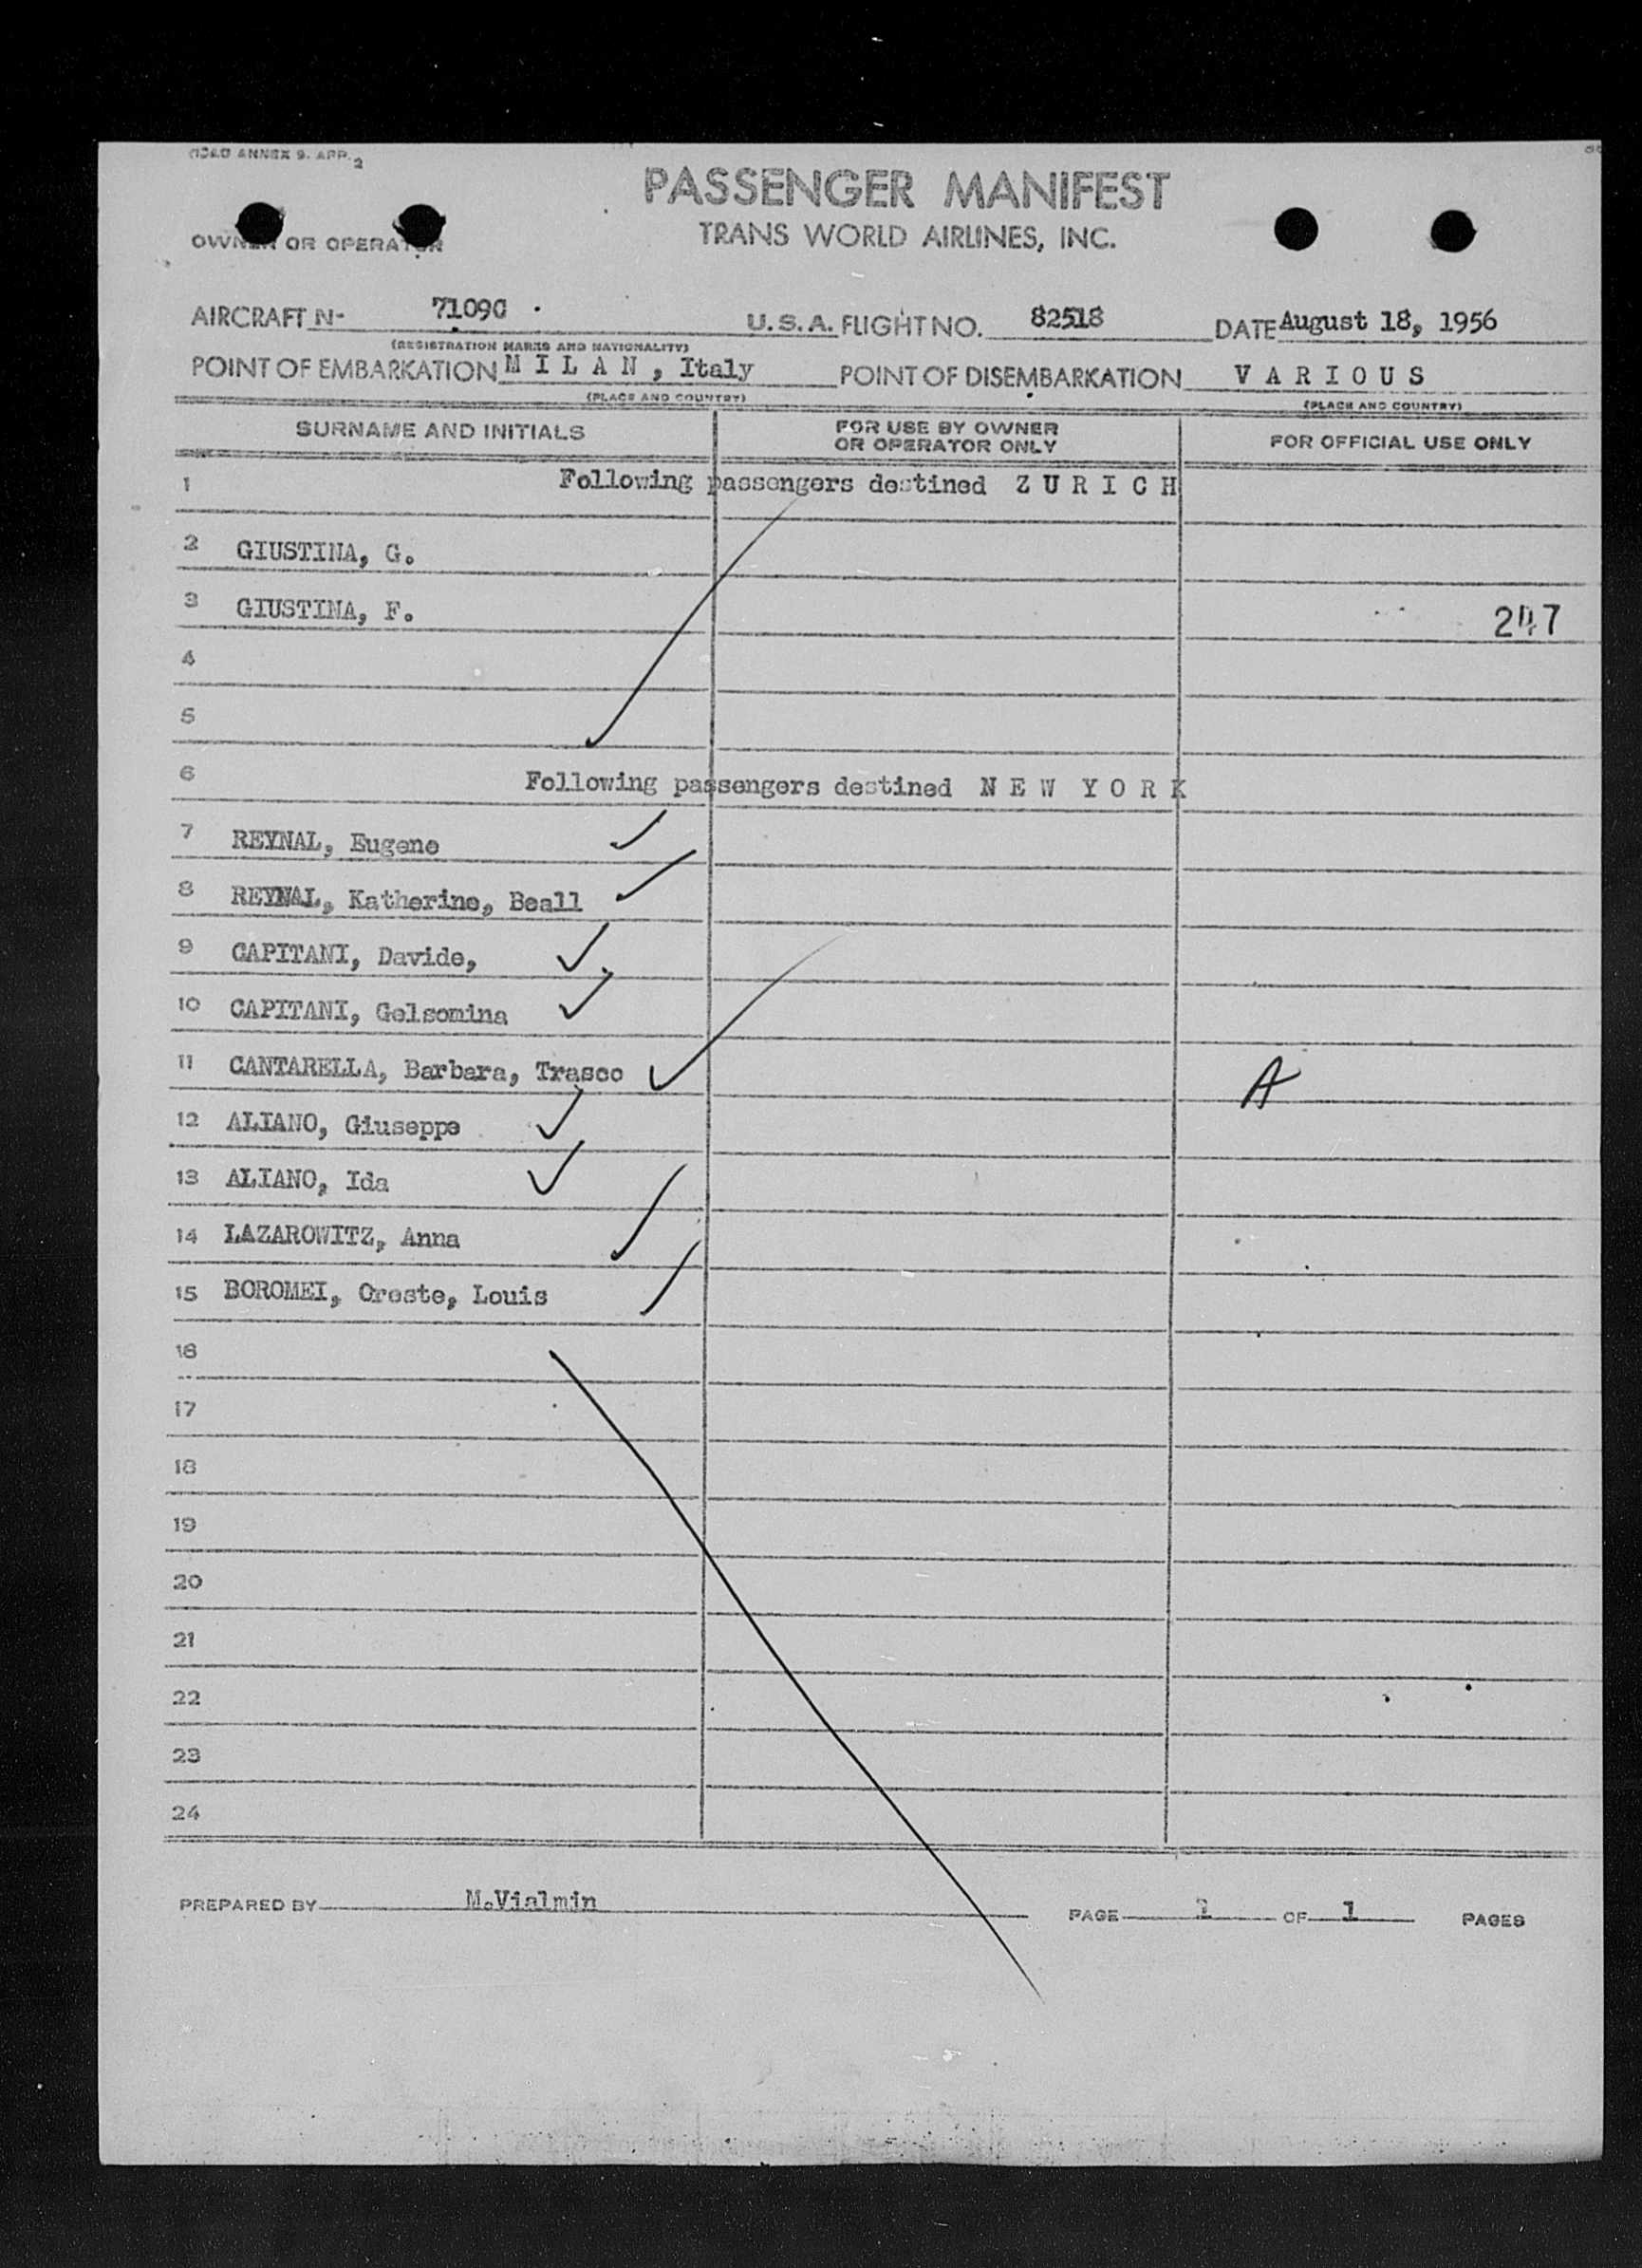 ICAO ANNEX 9. APP. 2
PASSENGER MANIFEST
OWNER OR OPERATOR
TRANS WORLD AIRLINES, INC.
AIRCRAFT N- 7109C U.S.A. FLIGHT NO. 82518 DATE August 18, 1956
(REGISTRATION MARKS AND NATIONALITY)
POINT OF EMBARKATION M I L A N , Italy POINT OF DISEMBARKATION V A R I O U S
(PLACE AND COUNTRY) (PLACE AND COUNTRY)
SURNAME AND INITIALS FOR USE BY OWNER OR OPERATOR ONLY FOR OFFICIAL USE ONLY
1 Following passengers destined Z U R I C H
2 GIUSTINA, G.
3 GIUSTINA, F. 247
4
5
6 Following passengers destined N E W Y O R K
7 REYNAL, Eugene
8 REYNAL, Katherine, Beall
9 CAPITANI, Davide,
10 CAPITANI, Gelsomina
11 CANTARELLA, Barbara, Trasco A
12 ALIANO, Giuseppe
13 ALIANO, Ida
14 LAZAROWITZ, Anna
15 BOROMEI, Oreste, Louis
16
17
18
19
20
21
22
23
24
PREPARED BY M.Vialmin PAGE 1 OF 1 PAGES